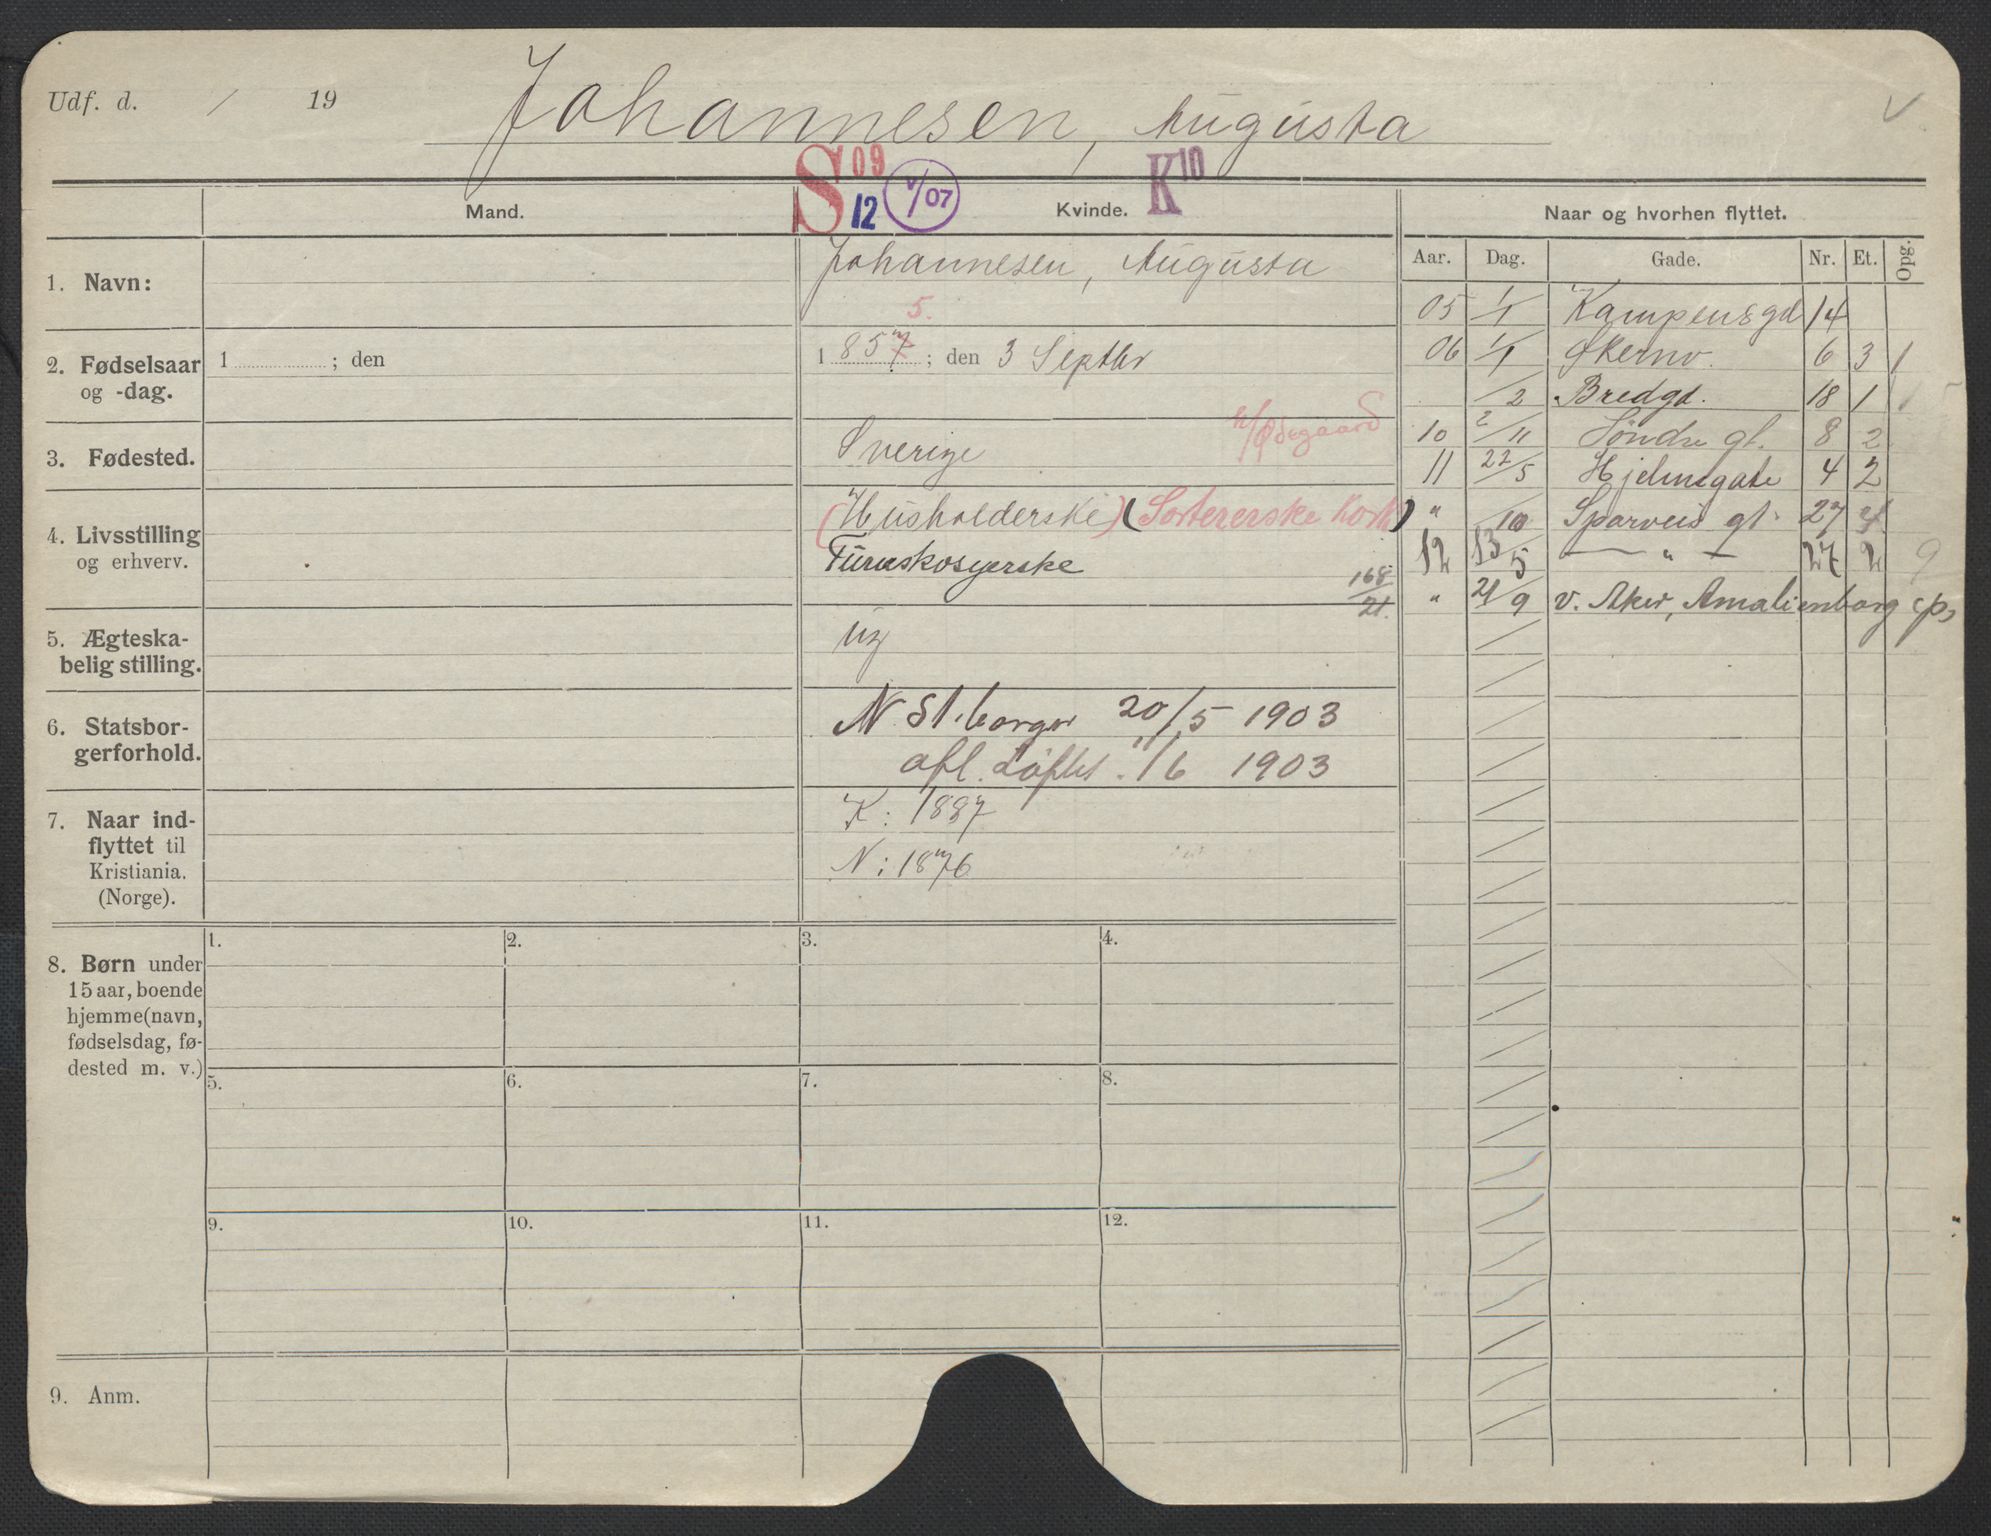 Udf. d. / 19
Johannesen, Augusta
S 09 12 V/07 K 10
Mand. Kvinde. Naar og hvorhen flyttet.
Aar. Dag. Gade. Nr. Et. Opg.
1. Navn: Johannesen, Augusta
5.
2. Fødselsaar og -dag. 1 ; den 1 857 ; den 3 Septbr
3. Fødested. Sverige
h/Ødegaard
4. Livsstilling og erhverv. (Husholderske) (Sortererske Kork)
168/21.
5. Ægteska-
belig stilling. ug
6. Statsbor-
gerforhold. N St.borger 20/5 1903
afl. Løftet 11/6 1903
7. Naar ind-
flyttet til
Kristiania.
(Norge).
K: 1887
N: 1876
05 1/1 Kampensgd 14
06 1/1 Økernv. 6 3 1
/2 Bredgd. 18 1
10 2/11 Søndre gt. 8 2
11 22/5 Hjelmsgate 4 2
" /10 Sparveis gt. 27 4
12 13/5 — " — 27 2 9
" 21/9 v. Aker, Amalienborg
8. Børn under
15 aar, boende
hjemme (navn,
fødselsdag, fø-
dested m. v.)
1. 2. 3. 4.
5. 6. 7. 8.
9. 10. 11. 12.
9. Anm.